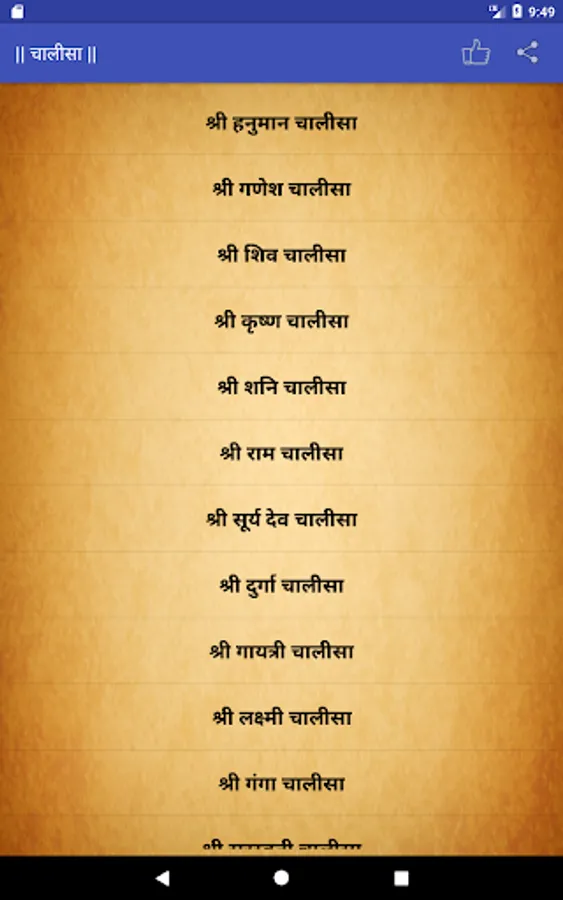 9:49
|| चालीसा ||
श्री हनुमान चालीसा
श्री गणेश चालीसा
श्री शिव चालीसा
श्री कृष्ण चालीसा
श्री शनि चालीसा
श्री राम चालीसा
श्री सूर्य देव चालीसा
श्री दुर्गा चालीसा
श्री गायत्री चालीसा
श्री लक्ष्मी चालीसा
श्री गंगा चालीसा